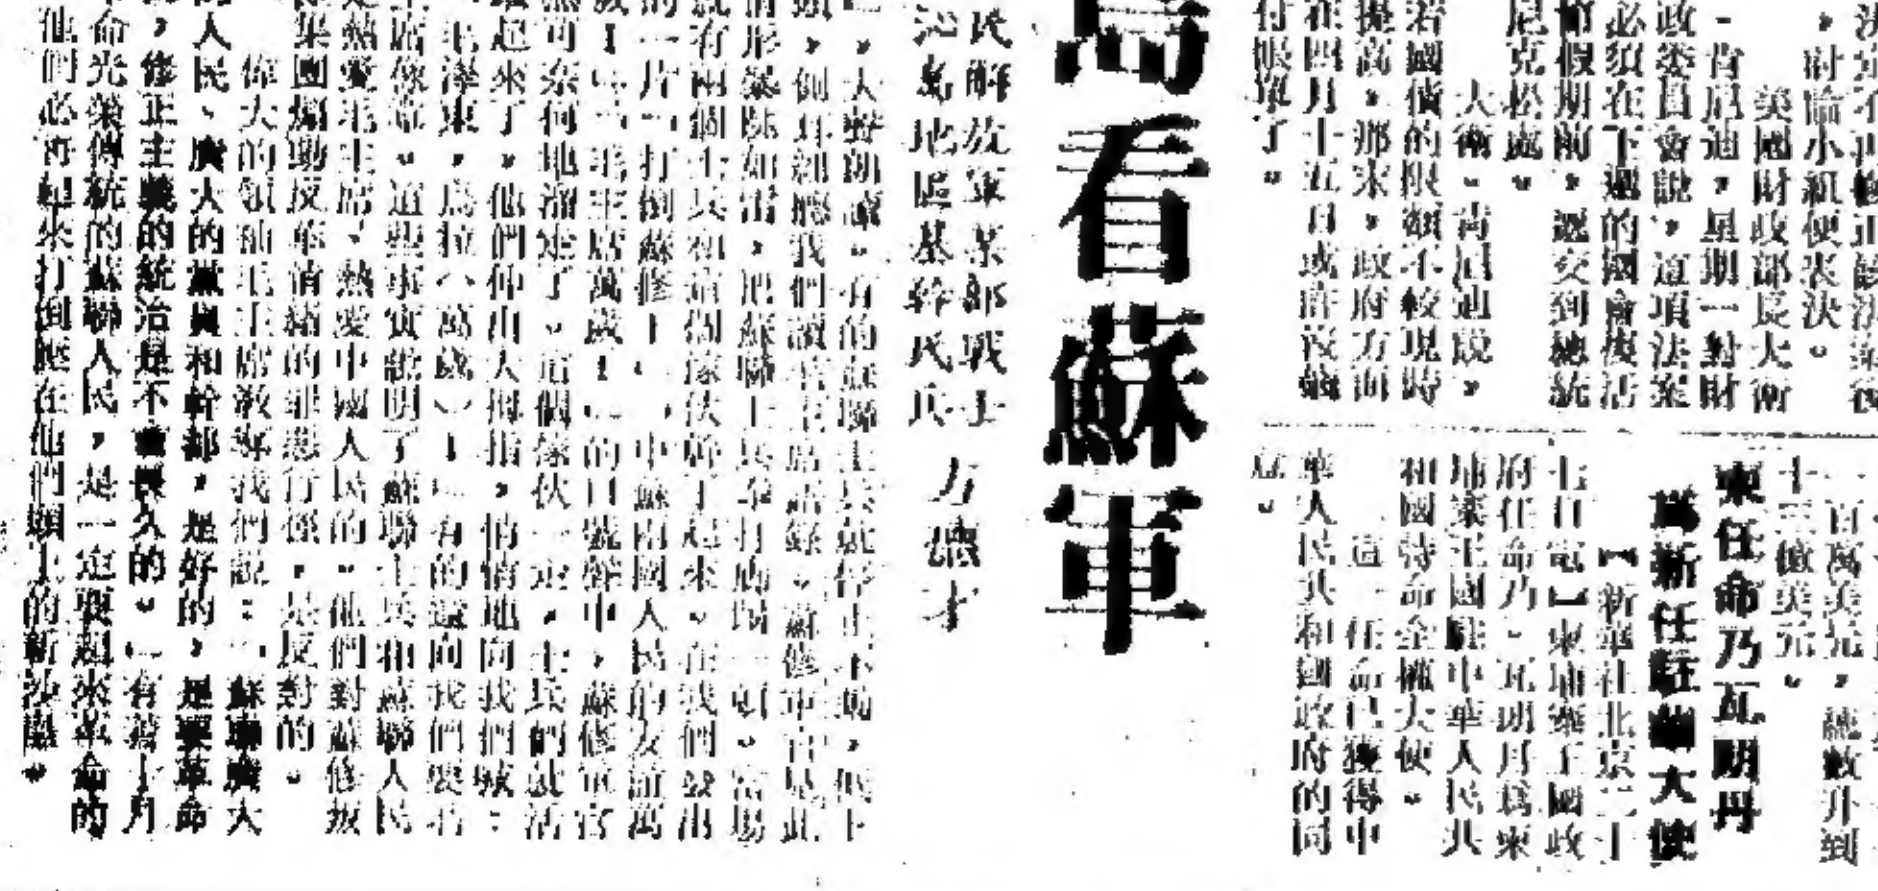 決定不再修正該法案後
，討論小組便表決。
美國財政部長大衛
-肯尼迪，星期一對財
政委員會說，這項法案
必須在下週的國會復活
節假期前，遞交到總統
尼克松處。
大衛-肯尼迪說，
若國債的限額不較現時
提高，那末，政府方面
在四月十五日或許沒錢
付賬單了。
一百萬美元，總數升到
十三億美元。
柬任命乃瓦朗丹
爲新任駐華大使
【新華社北京二十
七日電】柬埔寨王國政
府任命乃-瓦朗丹爲柬
埔寨王國駐中華人民共
和國特命全權大使。
這一任命已獲得中
華人民共和國政府的同
意。
島看蘇軍
民解放軍某部戰士
沁島地區基幹民兵　方德才
，大聲朗讀。有的蘇聯士兵就停止不動，低下
頭，側耳細聽我們讀毛主席語錄。蘇修軍官見此
情形暴跳如雷，把蘇聯士兵拳打腳踢一頓。當場
就有兩個士兵和這個傢伙幹了起來。在我們發出
的一片「打倒蘇修！」「中蘇兩國人民的友誼萬
歲！」「毛主席萬歲！」的口號聲中，蘇修軍官
無可奈何地溜走了。這個傢伙一走，士兵們就活
躍起來了。他們伸出大拇指，悄悄地向我們喊：
「毛澤東，烏拉（萬歲）！」有的還向我們要毛
主席像章。這些事實說明了蘇聯士兵和蘇聯人民
是熱愛毛主席、熱愛中國人民的。他們對蘇修叛
徒集團煽動反華情緒的罪惡行徑，是反對的。
偉大的領袖毛主席教導我們說：「蘇聯廣大
的人民、廣大的黨員和幹部，是好的，是要革命
的，修正主義的統治是不會長久的。」有着十月
革命光榮傳統的蘇聯人民，是一定要起來革命的
他們必將起來打倒壓在他們頭上的新沙皇。